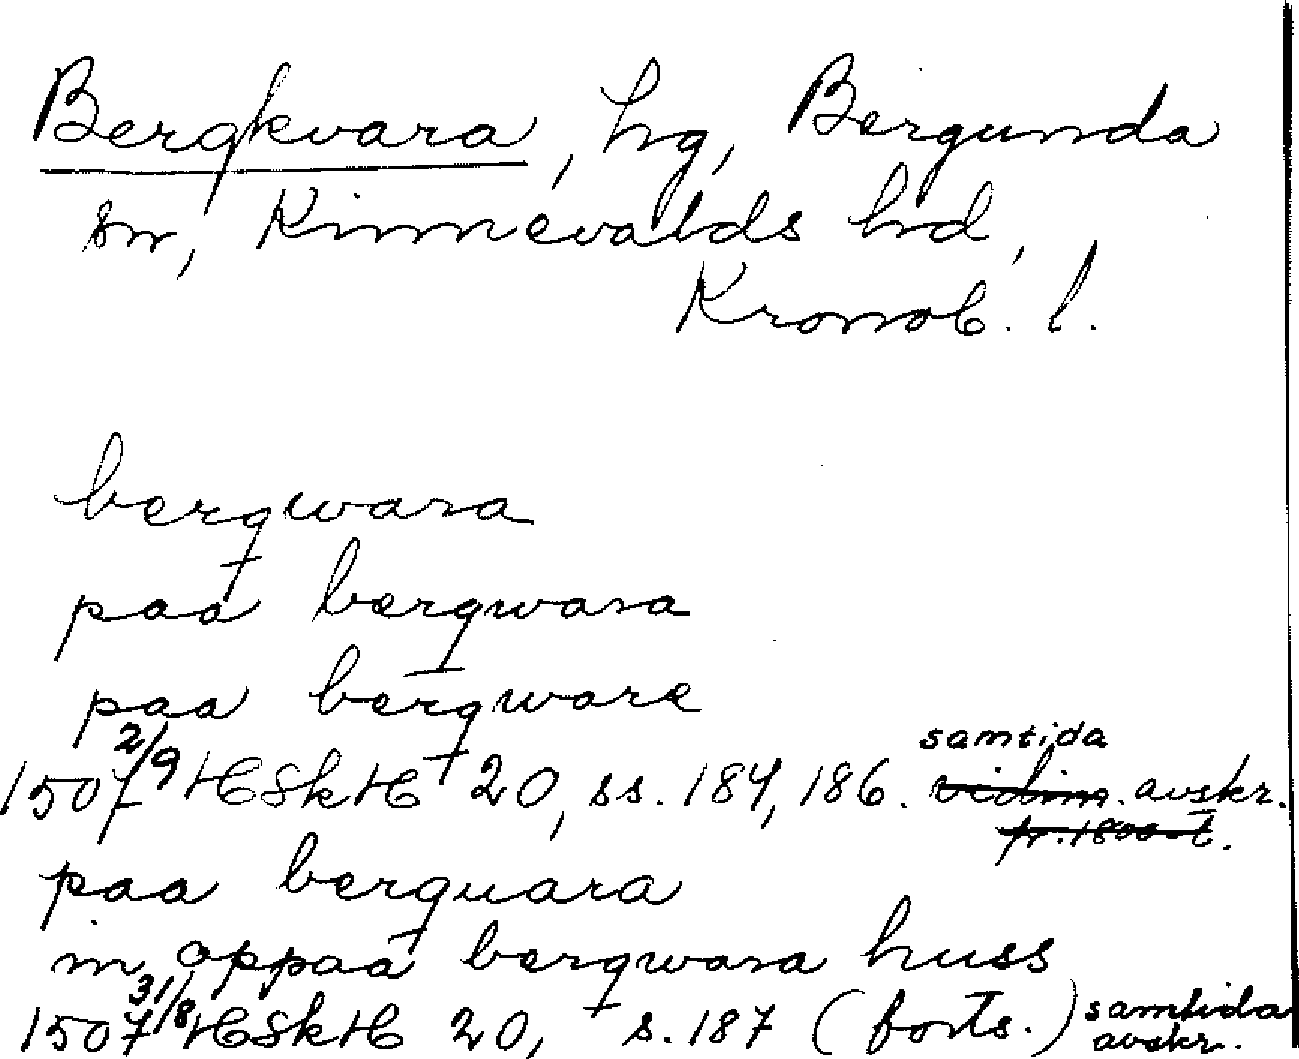 Bergkvara, hg, Bergunda
sn, Kinnevalds hd,
Kronob. l.
bergwara
paa bergwara
paa bergware
1507 2/9 HSkH 20, ss. 184, 186. samtida vidim. avskr.
fr. 1800-t.
paa berguara
in oppaa bergwara huss
1507 31/8 HSkH 20, s. 187 (forts.) samtida
avskr.